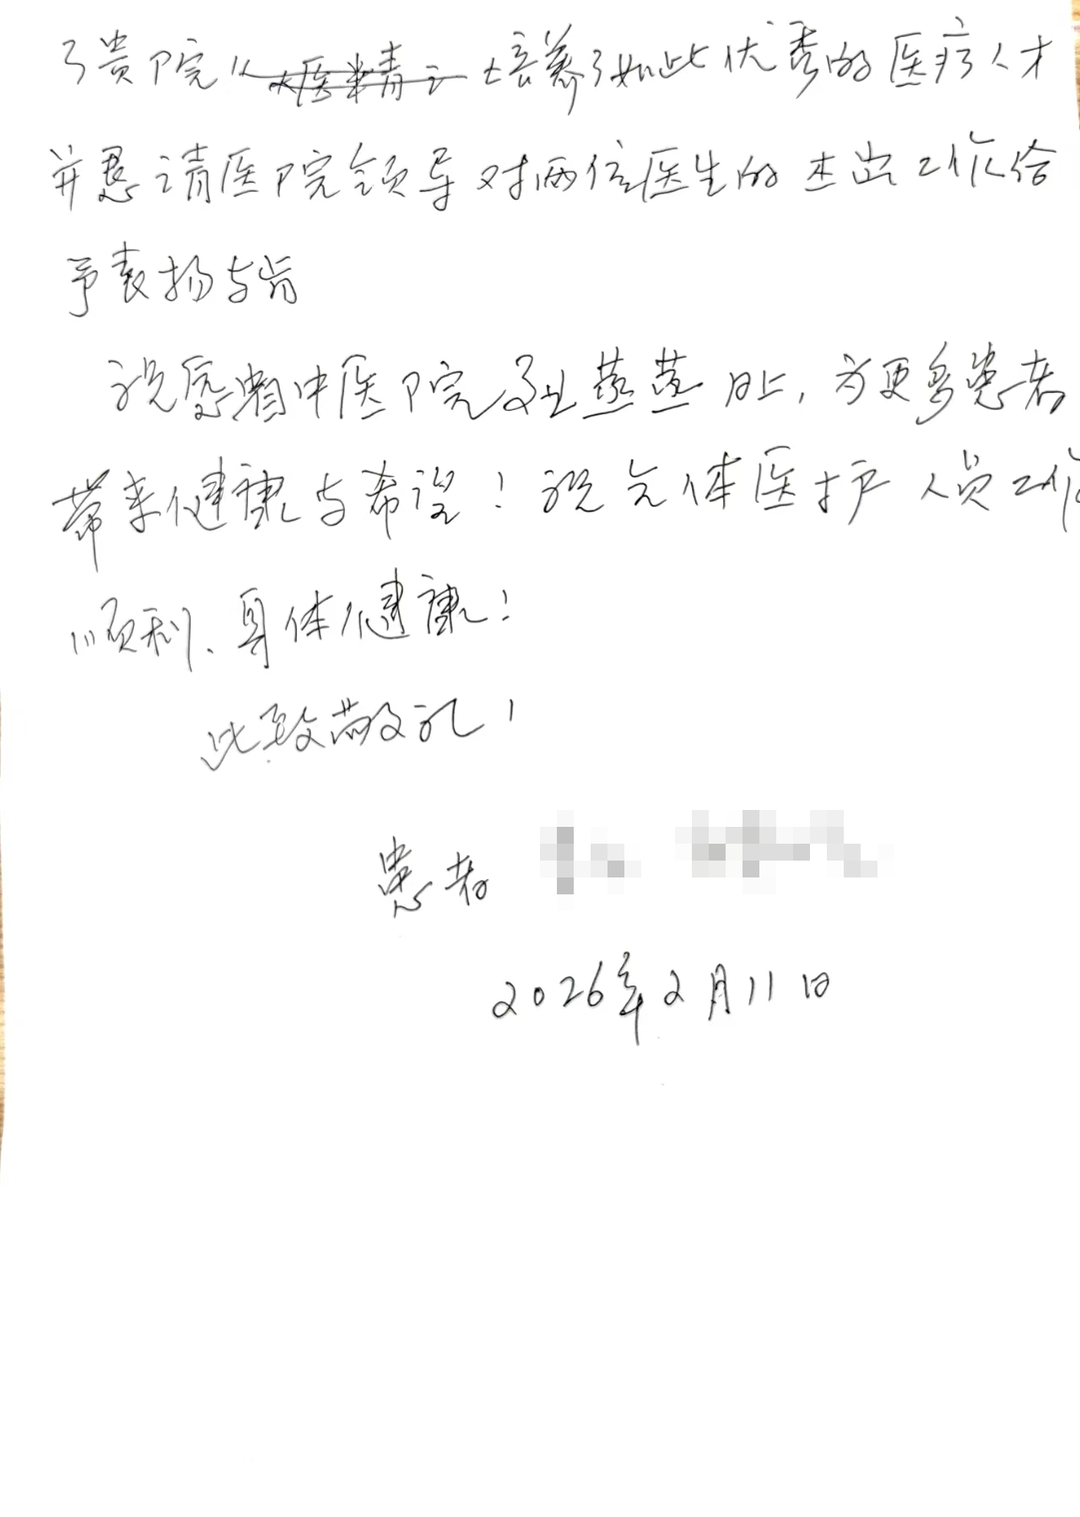 了贵院从 培养了如此优秀的医疗人才
并恳请医院领导对两位医生的杰出工作给
予表扬与肯
祝愿省中医院事业蒸蒸日上,为更多患者
带来健康与希望!祝全体医护人员工作
顺利、身体健康!
此致敬礼!
患者
2026年2月11日